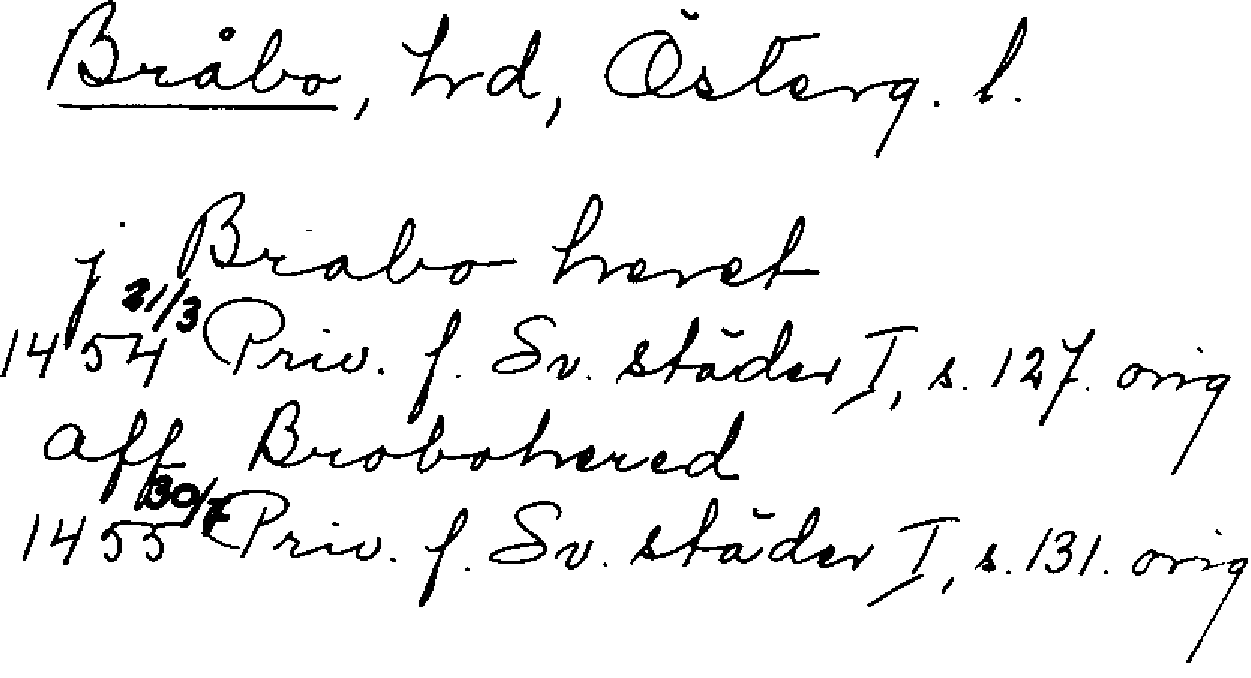 Bråbo, hrd, Österg. l.
j Brabo heret
1454 21/3 Priv. f. Sv. städer I, s. 127. orig
aff Brobohered
1455 30/7 Priv. f. Sv. städer I, s. 131. orig